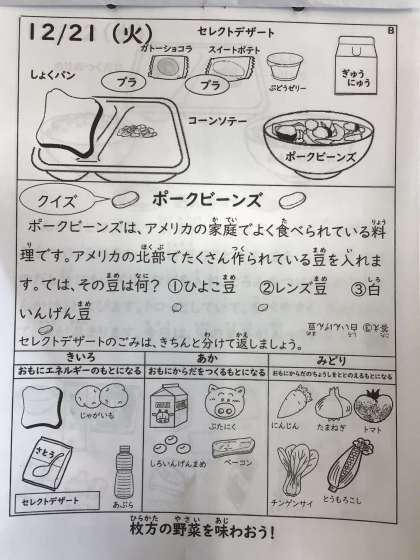 12/21（火）
セレクトデザート
B
ガトーショコラ
スイートポテト
しょくパン
プラ
プラ
ぶどうゼリー
ぎゅう
にゅう
コーンソテー
ポークビーンズ
クイズ
ポークビーンズ
ポークビーンズは、アメリカの家庭でよく食べられている料
理です。アメリカの北部でたくさん作られている豆を入れま
す。では、その豆は何？ ①ひよこ豆 ②レンズ豆 ③白
いんげん豆
答え③ 白いんげん豆
セレクトデザートのごみは、きちんと分けて返しましょう。
きいろ
あか
みどり
おもにエネルギーのもとになる
おもにからだをつくるもとになる
おもにからだのちょうしをととのえるもとになる
じゃがいも
ぶたにく
にんじん
たまねぎ
トマト
さとう
あぶら
しろいんげんまめ
ベーコン
チンゲンサイ
とうもろこし
セレクトデザート
枚方の野菜を味わおう！